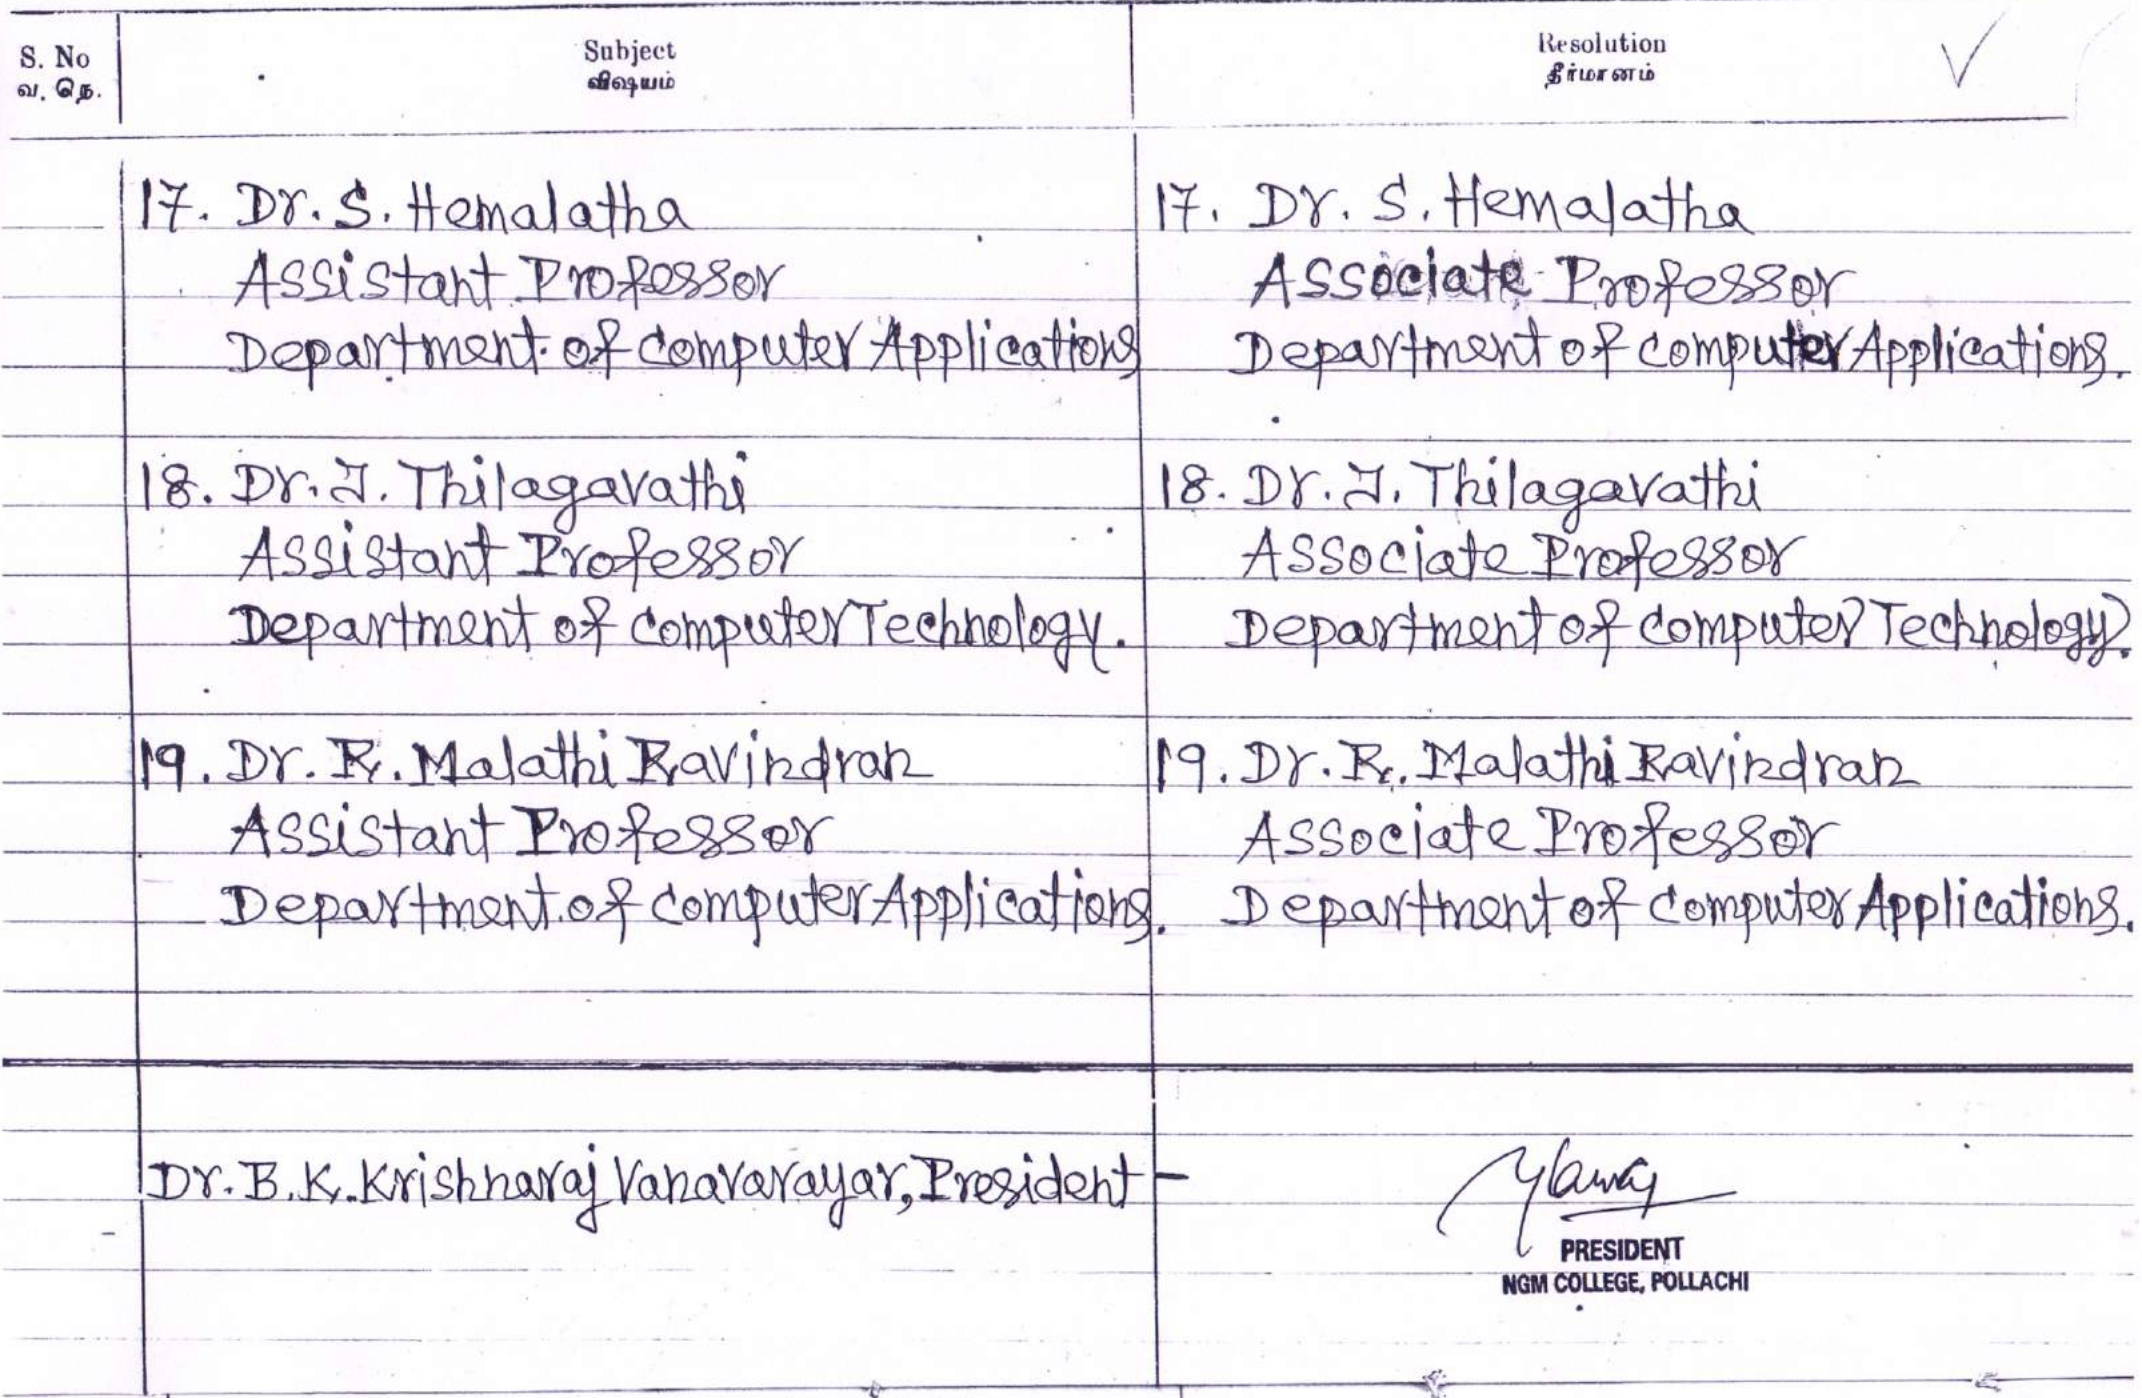 S. No
வ. நெ.
Subject
விஷயம்
Resolution
தீர்மானம்
17. Dr. S. Hemalatha
Assistant Professor
Department of Computer Applications
17. Dr. S. Hemalatha
Associate Professor
Department of Computer Applications.
18. Dr. J. Thilagavathi
Assistant Professor
Department of Computer Technology.
18. Dr. J. Thilagavathi
Associate Professor
Department of Computer Technology.
19. Dr. R. Malathi Ravindran
Assistant Professor
Department of Computer Applications.
19. Dr. R. Malathi Ravindran
Associate Professor
Department of Computer Applications.
Dr. B. K. Krishnaraj Vanavarayar, President -
PRESIDENT
NGM COLLEGE, POLLACHI